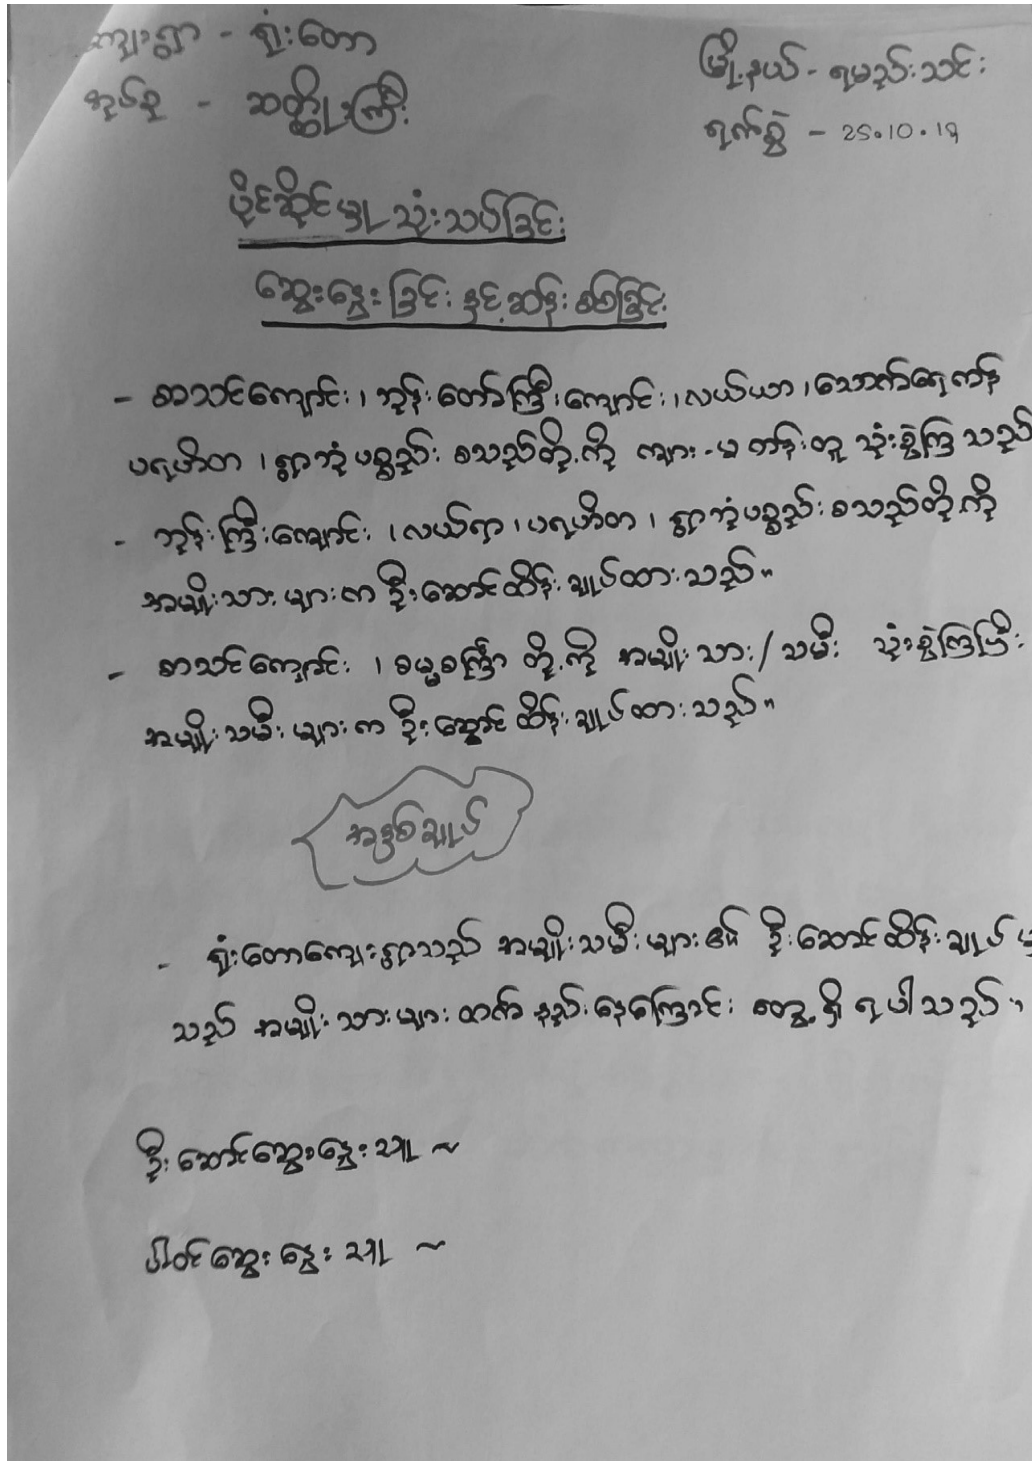 ကျေးရွာ - ရုံးတော
မြို့နယ် - ရမည်းသင်း
အုပ်စု - ဆတ္ထိုးကြီး
ရက်စွဲ - 25.10.19
ပိုင်ဆိုင်မှု သုံးသပ်ခြင်း
ဆွေးနွေးခြင်း နှင့် ဆန်းစစ်ခြင်း
- စာသင်ကျောင်း ၊ ဘုန်းတော်ကြီးကျောင်း ၊ လယ်ယာ ၊ သောက်ရေကန်
ပရဟိတ ၊ ရွာဘုံပစ္စည်း စသည်တို့ကို ကျား-မ တန်းတူ သုံးစွဲကြသည်
- ဘုန်းကြီးကျောင်း ၊ လယ်ရာ ၊ ပရဟိတ ၊ ရွာဘုံပစ္စည်း စသည်တို့ကို
အမျိုးသားများက ဦးဆောင်ထိန်းချုပ်ထားသည်။
- စာသင်ကျောင်း ၊ ဓမ္မစကြာ တို့ကို အမျိုးသား/သမီး သုံးစွဲကြပြီး
အမျိုးသမီးများက ဦးဆောင်ထိန်းချုပ်ထားသည်။
အနှစ်ချုပ်
- ရုံးတောကျေးရွာသည် အမျိုးသမီးများ၏ ဦးဆောင်ထိန်းချုပ်မှု
သည် အမျိုးသားများထက် နည်းနေကြောင်း တွေ့ရှိရပါသည်။
ဦးဆောင်ဆွေးနွေးသူ ~
ပါဝင်ဆွေးနွေးသူ ~